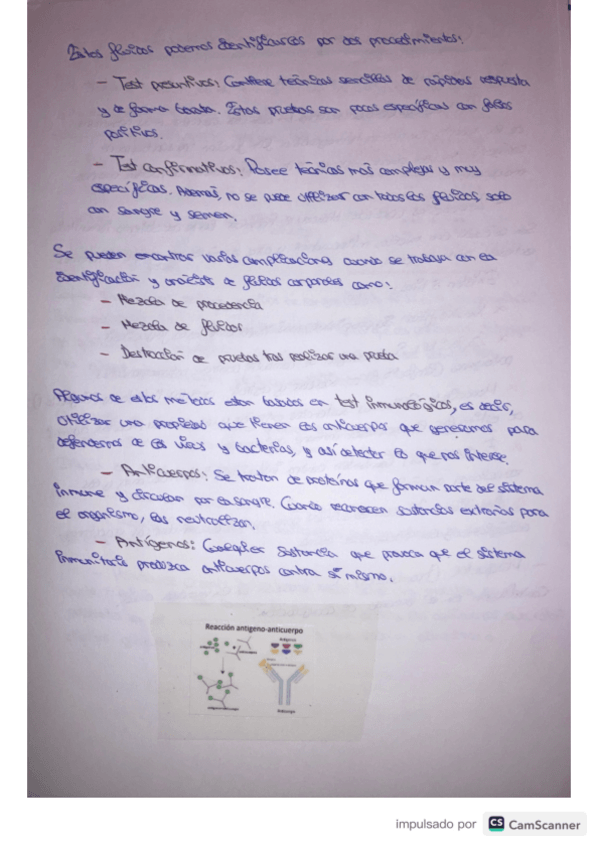 Estos fluidos podemos identificarlos por dos procedimientos:
- Test presuntivos: Contiene técnicas sencillas de rápidas respuesta
y de forma barata. Estas pruebas son pocas específicas con falsos
positivos.
- Test confirmativos: Posee técnicas más complejas y muy
específicas. Además, no se puede utilizar con todos los fluidos, solo
con sangre y semen.
Se pueden encontrar varias complicaciones cuando se trabaja con la
identificación y análisis de fluidos corporales como:
- Mezcla de procedencia
- Mezcla de fluidos
- Destrucción de pruebas tras realizar una prueba
Algunos de estos métodos están basados en test inmunológicos, es decir,
utilizar una propiedad que tienen los anticuerpos que generamos para
defendernos de los virus y bacterias, y así detectar lo que nos interese.
- Anticuerpos: Se tratan de proteínas que forman parte del sistema
inmune y circulan por la sangre. Cuando reconocen sustancias extrañas para
el organismo, las neutralizan.
- Antígenos: Cualquier sustancia que provoca que el sistema
inmunitario produzca anticuerpos contra sí mismo.
Reacción antígeno-anticuerpo
Antígenos
Anticuerpo
impulsado por CS CamScanner